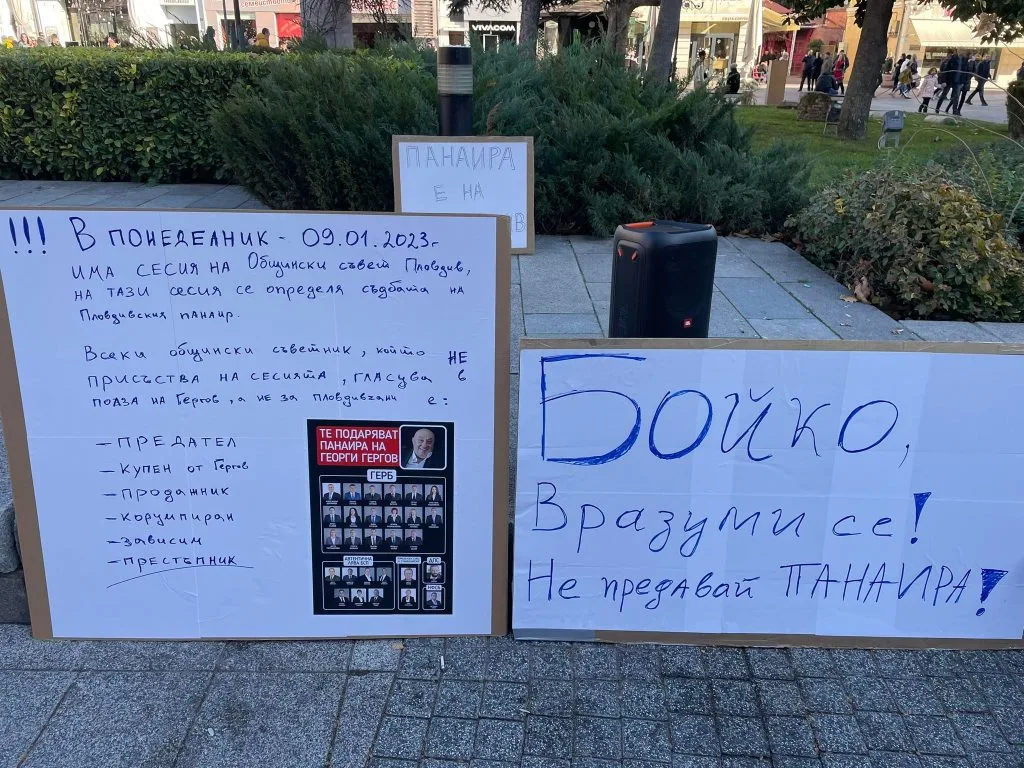 VIVACOM
ПАНАИРА
Е НА
!!! В ПОНЕДЕЛНИК - 09.01.2023г
ИМА СЕСИЯ НА Общински съвет Пловдив,
НА ТАЗИ СЕСИЯ СЕ ОПРЕДЕЛЯ СЪДБАТА НА
Пловдивския ПАНАИР.
Всеки общински съветник, който НЕ
ПРИСЪСТВА НА СЕСИЯТА, ГЛАСУВА В
ПОЛЗА НА Гергов, а НЕ ЗА ПЛОВДИВЧАНИ е:
- ПРЕДАТЕЛ
- КУПЕН ОТ Гергов
- ПРОДАЖНИК
- КОРУМПИРАН
- ЗАВИСИМ
- ПРЕСТЪПНИК
ТЕ ПОДАРЯВАТ
ПАНАИРА НА
ГЕОРГИ ГЕРГОВ
ГЕРБ
АВТЕНТИЧНА
ЛЯВА БСП
JBL
БОЙКО,
Вразуми се!
Не предавай ПАНАИРА!